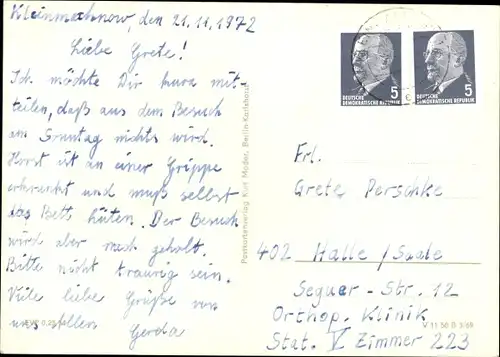 Kleinmachnow, den 21.11.1972
Liebe Grete!
Ich möchte Dir kurz mit-
teilen, daß aus dem Besuch
am Sonntag nichts wird.
Horst ist an einer Grippe
erkrankt und muß selbst
das Bett hüten. Der Besuch
wird aber nach geholt.
Bitte nicht traurig sein.
Viele liebe Grüße von
uns allen
Gerda
Postkartenverlag Kurt Mader, Berlin-Karlshorst
5
DEUTSCHE
DEMOKRATISCHE REPUBLIK
5
DEUTSCHE
DEMOKRATISCHE REPUBLIK
Frl.
Grete Perschke
402 Halle/Saale
Seguer-Str. 12
Orthop. Klinik
V 11 50 B
Stat. V Zimmer 223